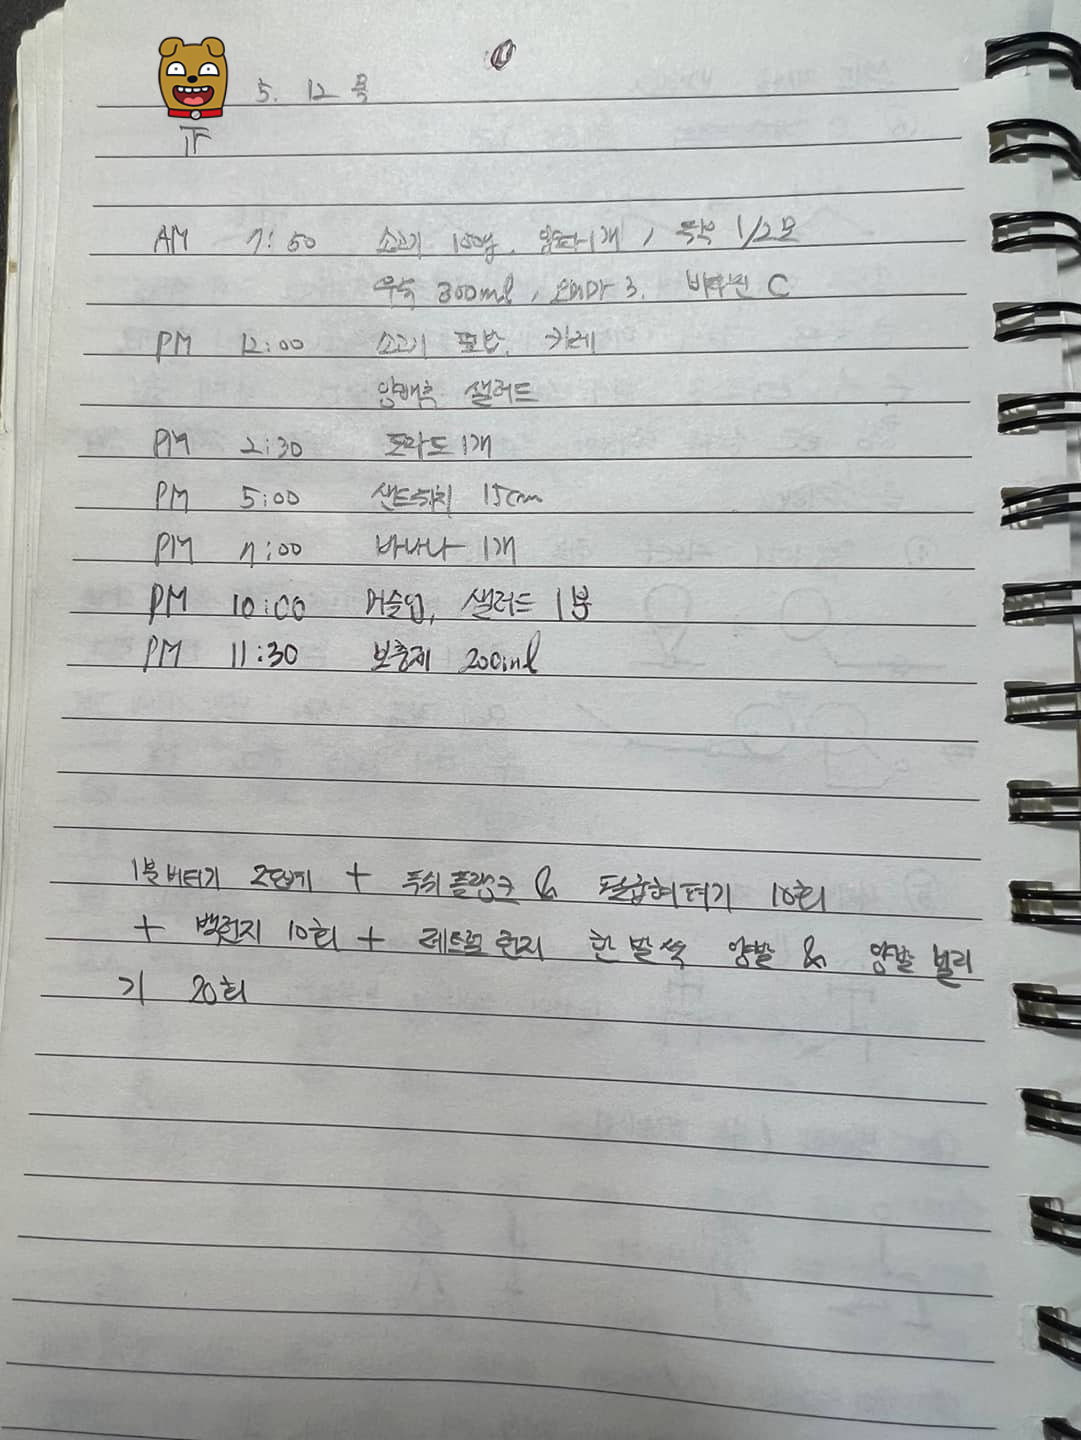 5. 12 목
AM 7:50 소고기 150g, 양파 1개, 두부 1/2모
우유 300ml, 오메가 3, 비타민 C
PM 12:00 소고기 덮밥, 카레
양배추 샐러드
PM 2:30 토마토 1개
PM 5:00 샌드위치 15cm
PM 7:00 바나나 1개
PM 10:00 머슬업, 샐러드 1분
PM 11:30 보충제 200ml
1분 버티기 2단계 + 푸쉬 플랭크 & 팔굽혀펴기 10회
+ 백런지 10회 + 레트럴 런지 한 발씩 양발 & 양발 벌리
기 20회